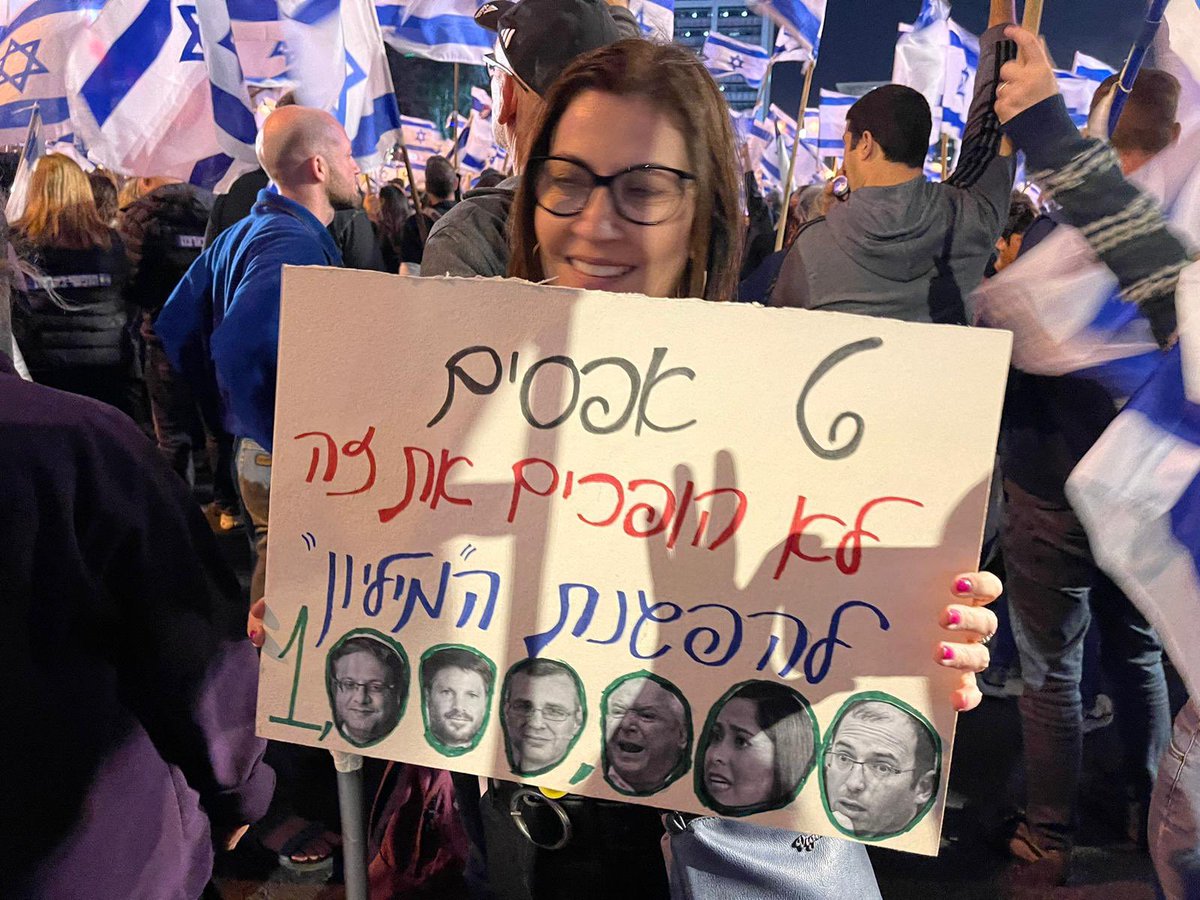 6 אפסים
לא הופכים את זה
להפגנת ה"מיליון"
1, ,